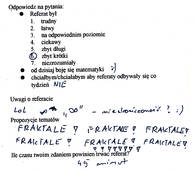 Odpowiedz na pytania:
• Referat był
1. trudny
2. łatwy
3. na odpowiednim poziomie
4. ciekawy
5. zbyt długi
6. zbyt krótki
7. niezrozumiały
• od dzisiaj boję się matematyki :)
• chciałbym/chciałabym aby referaty odbywały się co
tydzień NIE
Uwagi o referacie
LOL "∞" - nieskończoność? ;)
Propozycje tematów
FRAKTALE? FRAKTALE? FRAKTALE?
FRAKTALE? FRAKTALE?
Ile czasu twoim zdaniem powinien trwać referat?
45 minut